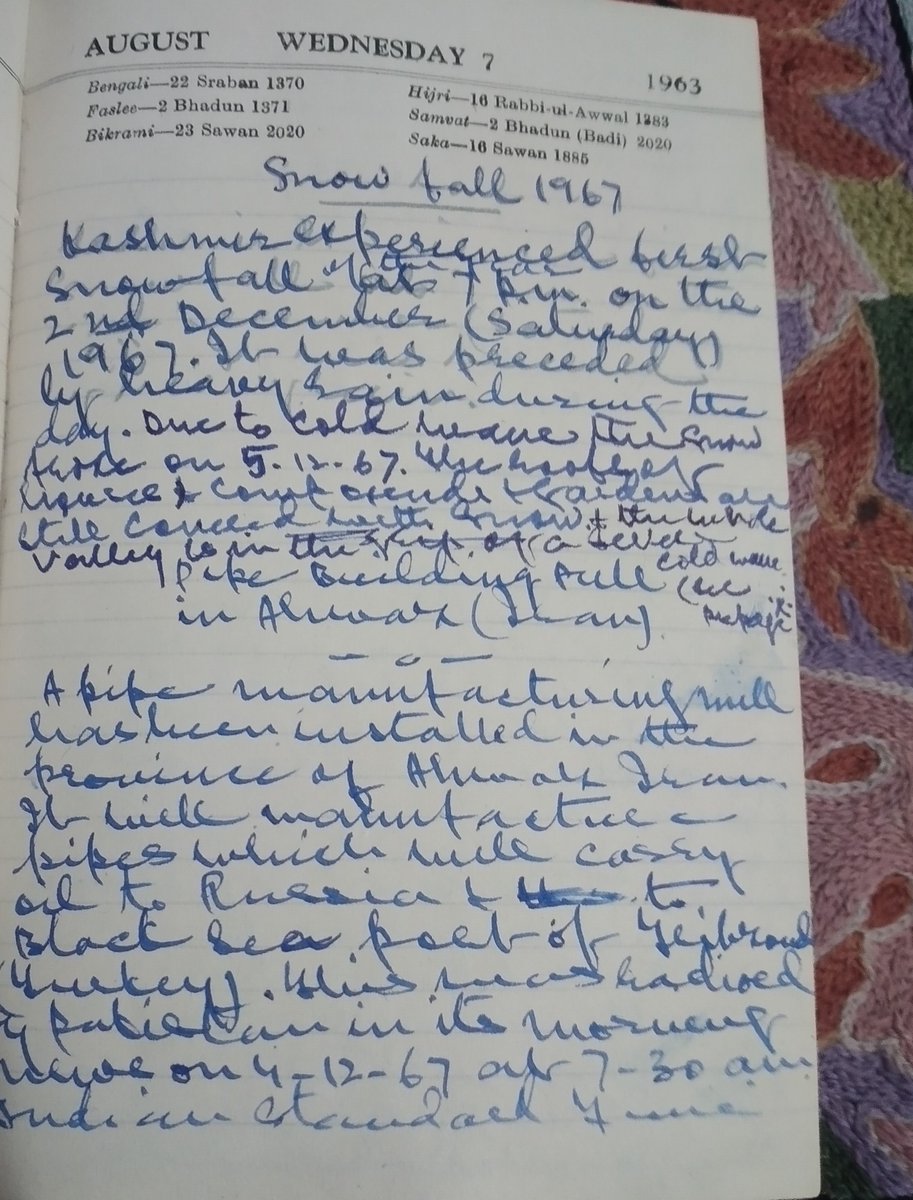 AUGUST WEDNESDAY 7
1963
Bengali—22 Sraban 1370
Faslee—2 Bhadun 1371
Bikrami—23 Sawan 2020
Hijri—16 Rabbi-ul-Awwal 1383
Samvat—2 Bhadun (Badi) 2020
Saka—16 Sawan 1885
Snow fall 1967
Kashmir experienced first
Snowfall at 7 P.m. on the
2nd December (Saturday)
1967. It was preceded
by heavy rain during the
day. Due to cold wave the snow
froze on 5-12-67. The roofs of
houses & compounds & Gardens are
still covered with snow & the whole
valley is in the grip of a severe
cold wave
Pipe Building Mill
in Ahwaz (Iran)
— o —
A pipe manufacturing mill
has been installed in the
province of Ahwaz Iran.
It will manufacture
pipes which will carry
oil to Russia & to
Black Sea port of
Turkey). This was radioed
by Pakistan in its morning
news on 4-12-67 at 7-30 am
Indian Standard Time